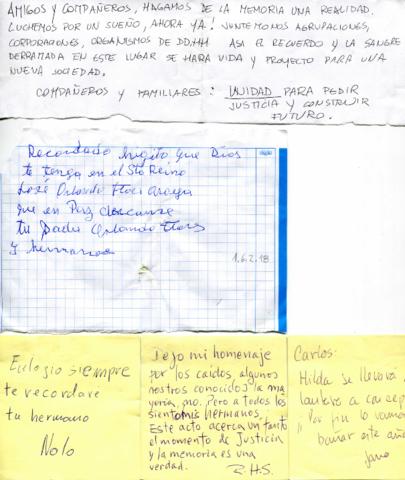 AMIGOS Y COMPAÑEROS, HAGAMOS DE LA MEMORIA UNA REALIDAD.
LUCHEMOS POR UN SUEÑO, AHORA YA! JUNTEMONOS AGRUPACIONES,
CORPORACIONES, ORGANISMOS DE DD.HH ASI EL RECUERDO Y LA SANGRE
DERRAMADA EN ESTE LUGAR SE HARA VIDA Y PROYECTO PARA UNA
NUEVA SOCIEDAD.
COMPAÑEROS Y FAMILIARES: UNIDAD PARA PEDIR
JUSTICIA Y CONSTRUIR
FUTURO.
Recordado hijito que Dios
te tenga en el Sto Reino
José Orlando Flores Araya
que en Paz descanse
tu Padre Orlando Flores
y hermanos
1.6.2.18
Eulogio siempre
te recordare
tu hermano
Nolo
Dejo mi homenaje
por los caídos, algunos
rostros conocidos la ma
yoría, no. Pero a todos los
siento mis hermanos.
Este acto acerca un tanto
el momento de Justicia
y la memoria es una
verdad.
R.H.S.
Carlos:
Hilda se llevará
lautero a concep
"Por fin lo vamos
bañar este año
Jano